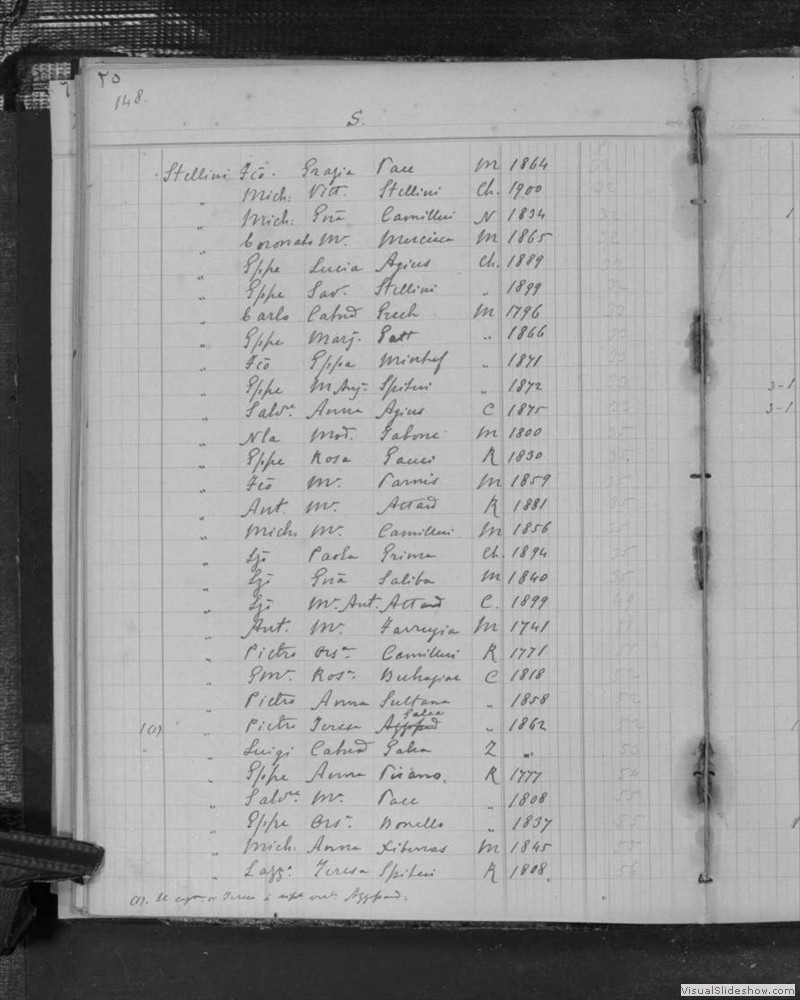 50
148.
S.
Stellini Fco. Grazia Pace M 1864
„ Mich. Vitt. Stellini Ch. 1900
„ Mich. Gna Camilleri N 1834
„ Coronato Ma. Mercieca M 1865
„ Gppe Lucia Agius Ch. 1889
„ Gppe Sav. Stellini „ 1899
„ Carlo Catnd Grech M 1796
„ Gppe Marg. Gatt „ 1866
„ Fco Gppa Mintuf „ 1871
„ Gppe M Ang. Spiteri „ 1872
„ Salvre Anna Agius C 1875
„ Nla Mod. Tabone M 1800
„ Gppe Rosa Gauci R 1830
„ Fco Ma. Parnis M 1859
„ Ant. Ma. Attard R 1881
„ Mich. Ma. Camilleri M 1856
„ Lzo Paola Grima Ch. 1894
„ Lzo Gna Saliba M 1840
„ Lzo Ma. Ant. Attard C. 1899
„ Ant. Ma. Farrugia M 1741
„ Pietro Orsa Camilleri R 1771
„ Gmr. Rosa Buhagiar C 1818
„ Pietro Anna Sultana „ 1858
Galea
1(1) „ Pietro Teresa „ 1862
„ Luigi Catnd Galea Z „
„ Gppe Anna Pisano. R 1777
„ Salvre Ma. Pace „ 1808
„ Gppe Orsa. Bonello „ 1837
„ Mich. Anna Xiberras M 1845
„ Lazzo. Teresa Spiteri R 1808.
(1). Teresa Azzopard.
1
3-1
3-1
VisualSlideshow.com